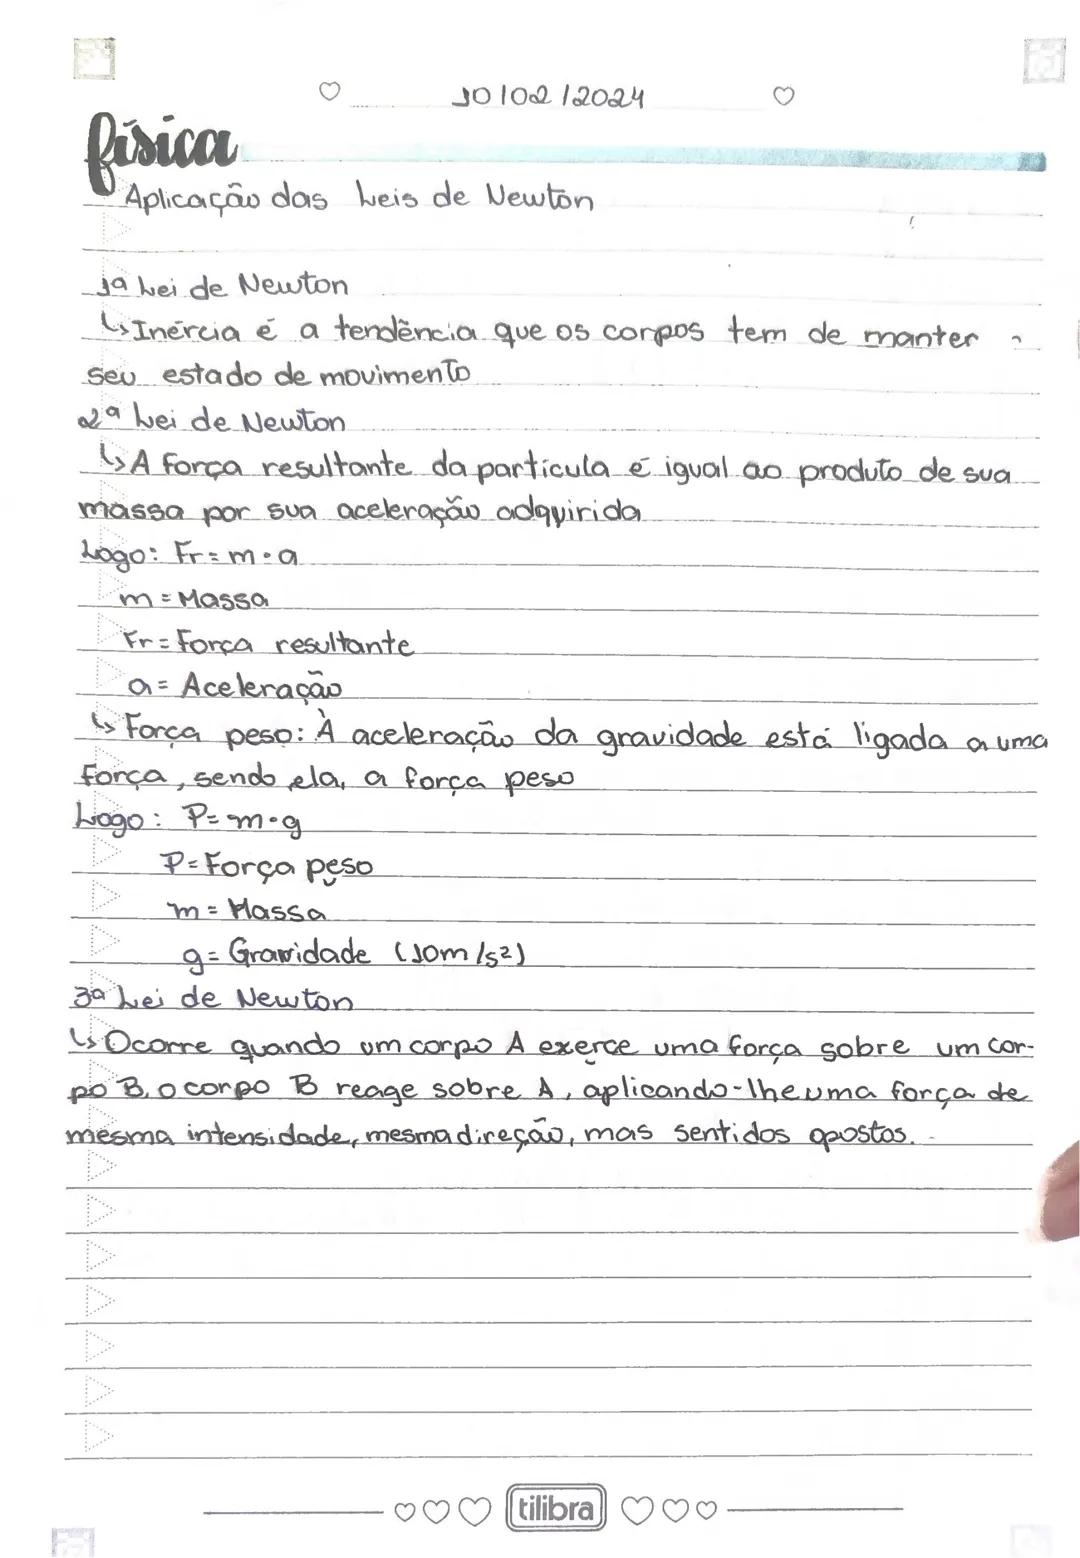 10/02/2024
física
Aplicação das Leis de Newton
1ª Lei de Newton
↳ Inércia é a tendência que os corpos tem de manter
seu estado de movimento
2ª Lei de Newton
↳ A força resultante da partícula é igual ao produto de sua
massa por sua aceleração adquirida
Logo: Fr = m · a
m = Massa
Fr = Força resultante
a = Aceleração
↳ Força peso: À aceleração da gravidade está ligada a uma
força, sendo ela, a força peso
Logo: P = m · g
P = Força peso
m = Massa
g = Gravidade (10m/s²)
3ª Lei de Newton
↳ Ocorre quando um corpo A exerce uma força sobre um cor-
po B, o corpo B reage sobre A, aplicando-lhe uma força de
mesma intensidade, mesma direção, mas sentidos opostos.
tilibra